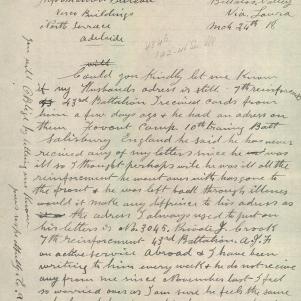 Information Bureau
Verco Buildings
North Terrace
Adelaide
Via. Loxia
Mch 24th
Could you Kindly let me Know
if my Husbands adress is still 7th reinforcement
43rd Battalion I recieved cards from
him a few days ago & he had an adress on
them Fovant Camp 10th Training Batt
Salisbury England he said he has never
recieved any of my letters since he was
ill so I thought perhaps with he was ill all the
reinforcement he went over with has gone to
the front & he was left back through illness
would it make any diffrence to his adress as
the adress I always used to put on
his letters is No 3045. Private J. Crook
7th reinforcement 43rd Battalion A.I.F
on active service Abroad & I have been
writing to him every week & he do not recieve
any from me since November last I feel
so worried over as I am sure he feels the same